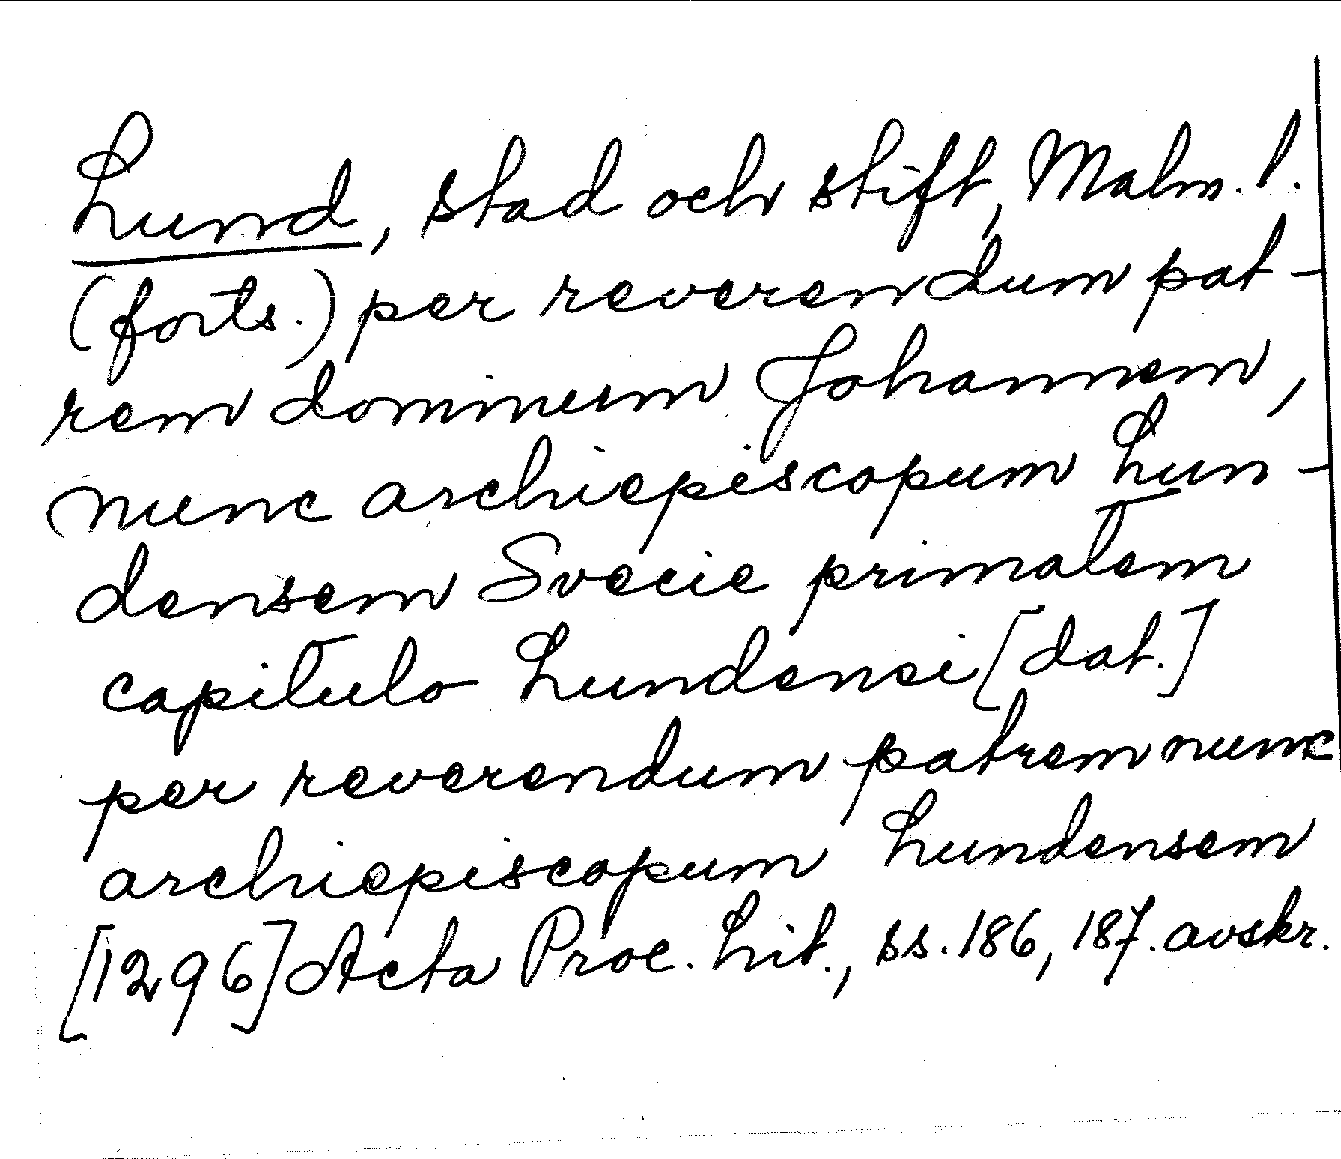 Lund, stad och stift, Malm. l.
(forts.) per reverendum pat-
rem dominum Johannem,
nunc archiepiscopum Lun-
densem Svecie primatem
capitulo Lundensi [dat.]
per reverendum patrem nunc
archiepiscopum Lundensem
[1296] Acta Proc. Lit., ss. 186, 187. avskr.